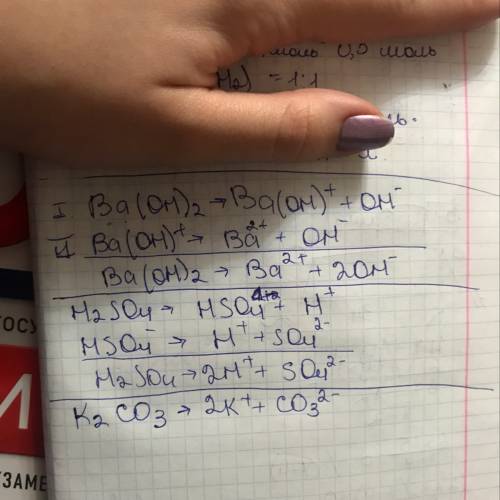 моль 0,5 моль
H2) = 1:1
I Ba(OH)2 → Ba(OH)⁺ + OH⁻
II Ba(OH)⁺ → Ba²⁺ + OH⁻
Ba(OH)2 → Ba²⁺ + 2OH⁻
H2SO4 → HSO4 + H⁺
HSO4⁻ → H⁺ + SO4²⁻
H2SO4 → 2H⁺ + SO4²⁻
K2CO3 → 2K⁺ + CO3²⁻
ГОСУ
И
ЭКЗАМЕ